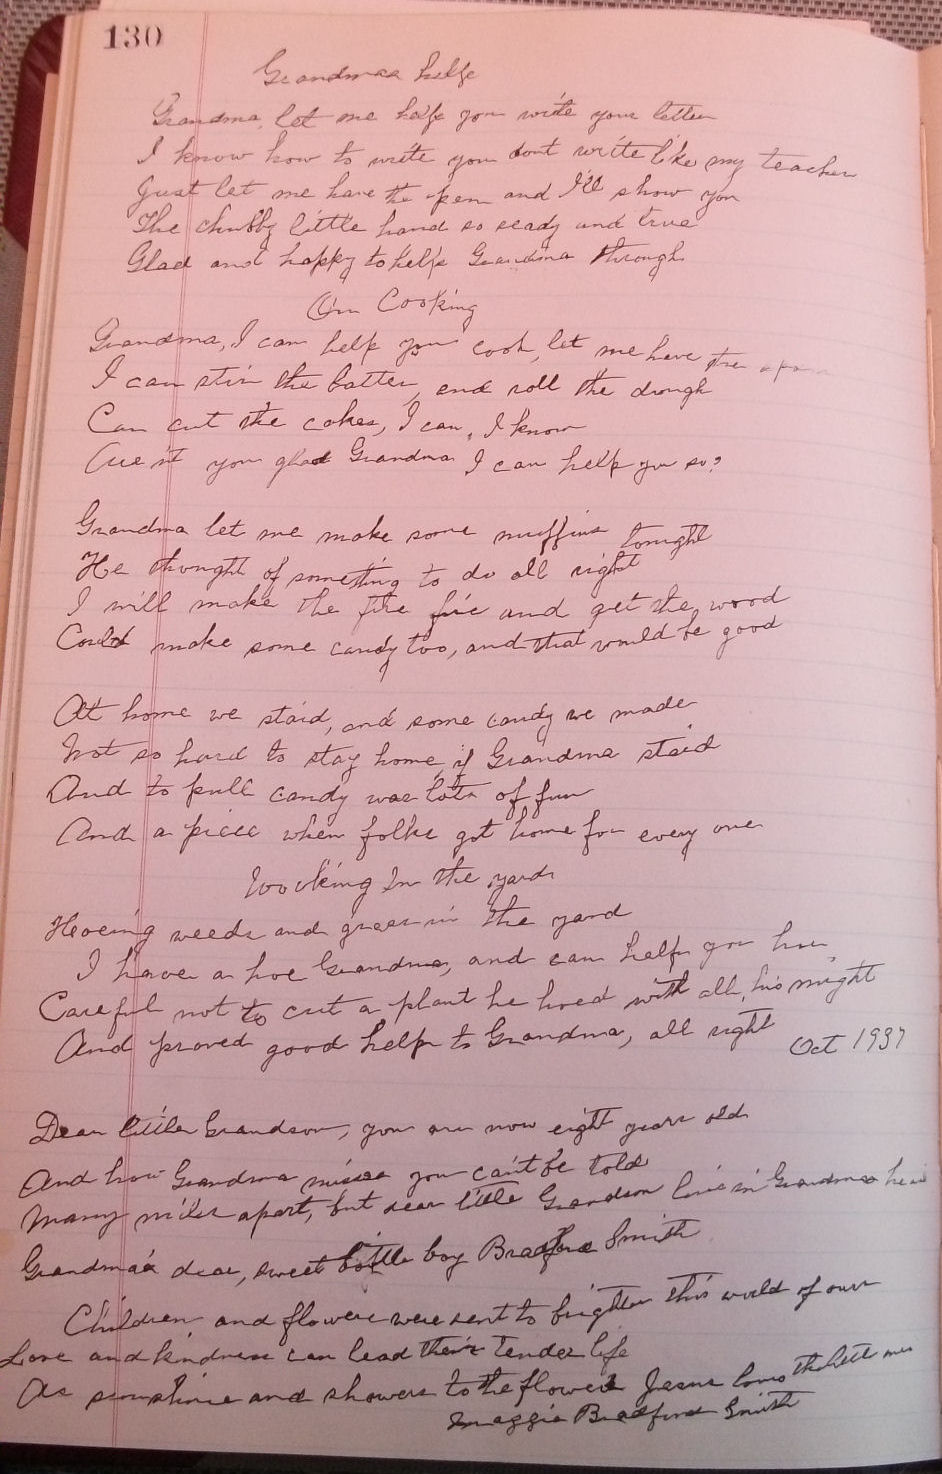 130
Grandmas help
Grandma, let me help you write your letter
I know how to write you dont write like my teacher
Just let me have the pen and I'll show you
The chubby little hand so ready and true
Glad and happy to help Grandma through
On Cooking
Grandma, I can help you cook, let me have the apron
I can stir the batter, and roll the dough
Can cut the cakes, I can, I know
Are nt you glad Grandma I can help you so?
Grandma let me make some muffins tonight
He thought of something to do all right
I will make the fire and get the wood
Could make some candy too, and that would be good
At home we staid, and some candy we made
Not so hard to stay home, if Grandma staid
And to pull candy was lots of fun
And a piece when folks got home for every one
Working In the yard
Hoeing weeds and grass in the yard
I have a hoe Grandma, and can help you hoe
Careful not to cut a plant he hoed with all his might
And proved good help to Grandma, all right
Oct 1937
Dear little Grandson, you are now eight years old
And how Grandma misses you can't be told
Many miles apart, but dear little Grandson lives in Grandmas
Grandma's dear, sweet little boy Bradford Smith
Children and flowers were sent to brighten this world of ours
Love and kindness can lead their tender life
As sunshine and showers to the flowers Jesus loves the little
Maggie Bradford Smith